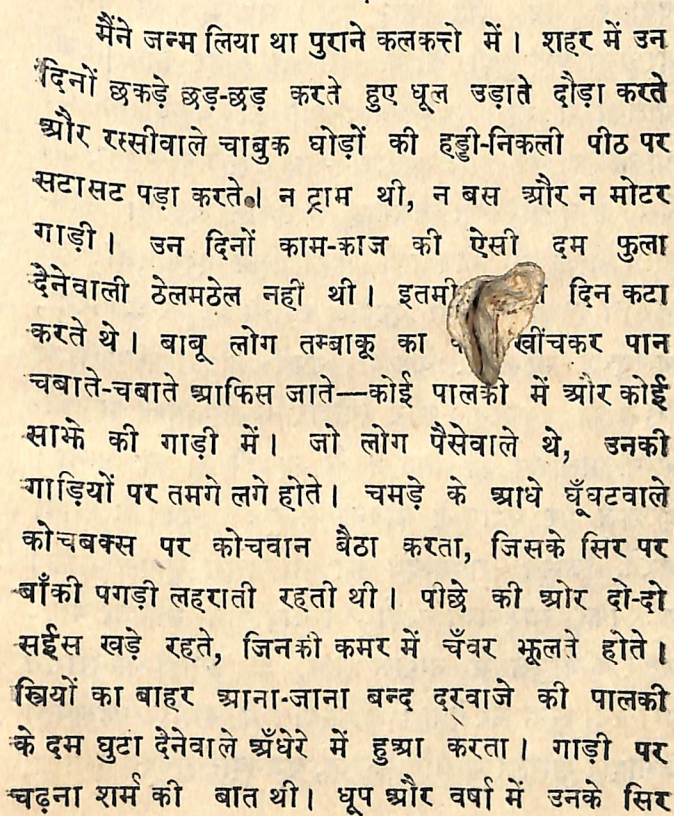 मैंने जन्म लिया था पुराने कलकत्ते में। शहर में उन
दिनों छकड़े छड़-छड़ करते हुए धूल उड़ाते दौड़ा करते
और रस्सीवाले चाबुक घोड़ों की हड्डी-निकली पीठ पर
सटासट पड़ा करते। न ट्राम थी, न बस और न मोटर
गाड़ी। उन दिनों काम-काज की ऐसी दम फुला
दैनेवाली ठेलमठेल नहीं थी। दिन कटा
करते थे। बाबू लोग तम्बाकू का खींचकर पान
चबाते-चबाते आफिस जाते—कोई पालकी में और कोई
साझे की गाड़ी में। जो लोग पैसेवाले थे, उनकी
गाड़ियों पर तमगे लगे होते। चमड़े के आधे घूँघटवाले
कोचबक्स पर कोचवान बैठा करता, जिसके सिर पर
बाँकी पगड़ी लहराती रहती थी। पीछे की ओर दो-दो
सईस खड़े रहते, जिनकी कमर में चँवर झूलते होते।
स्त्रियों का बाहर आना-जाना बन्द दरवाजे की पालकी
के दम घुटा दैनेवाले अँधेरे में हुआ करता। गाड़ी पर
चढ़ना शर्म की बात थी। धूप और वर्षा में उनके सिर